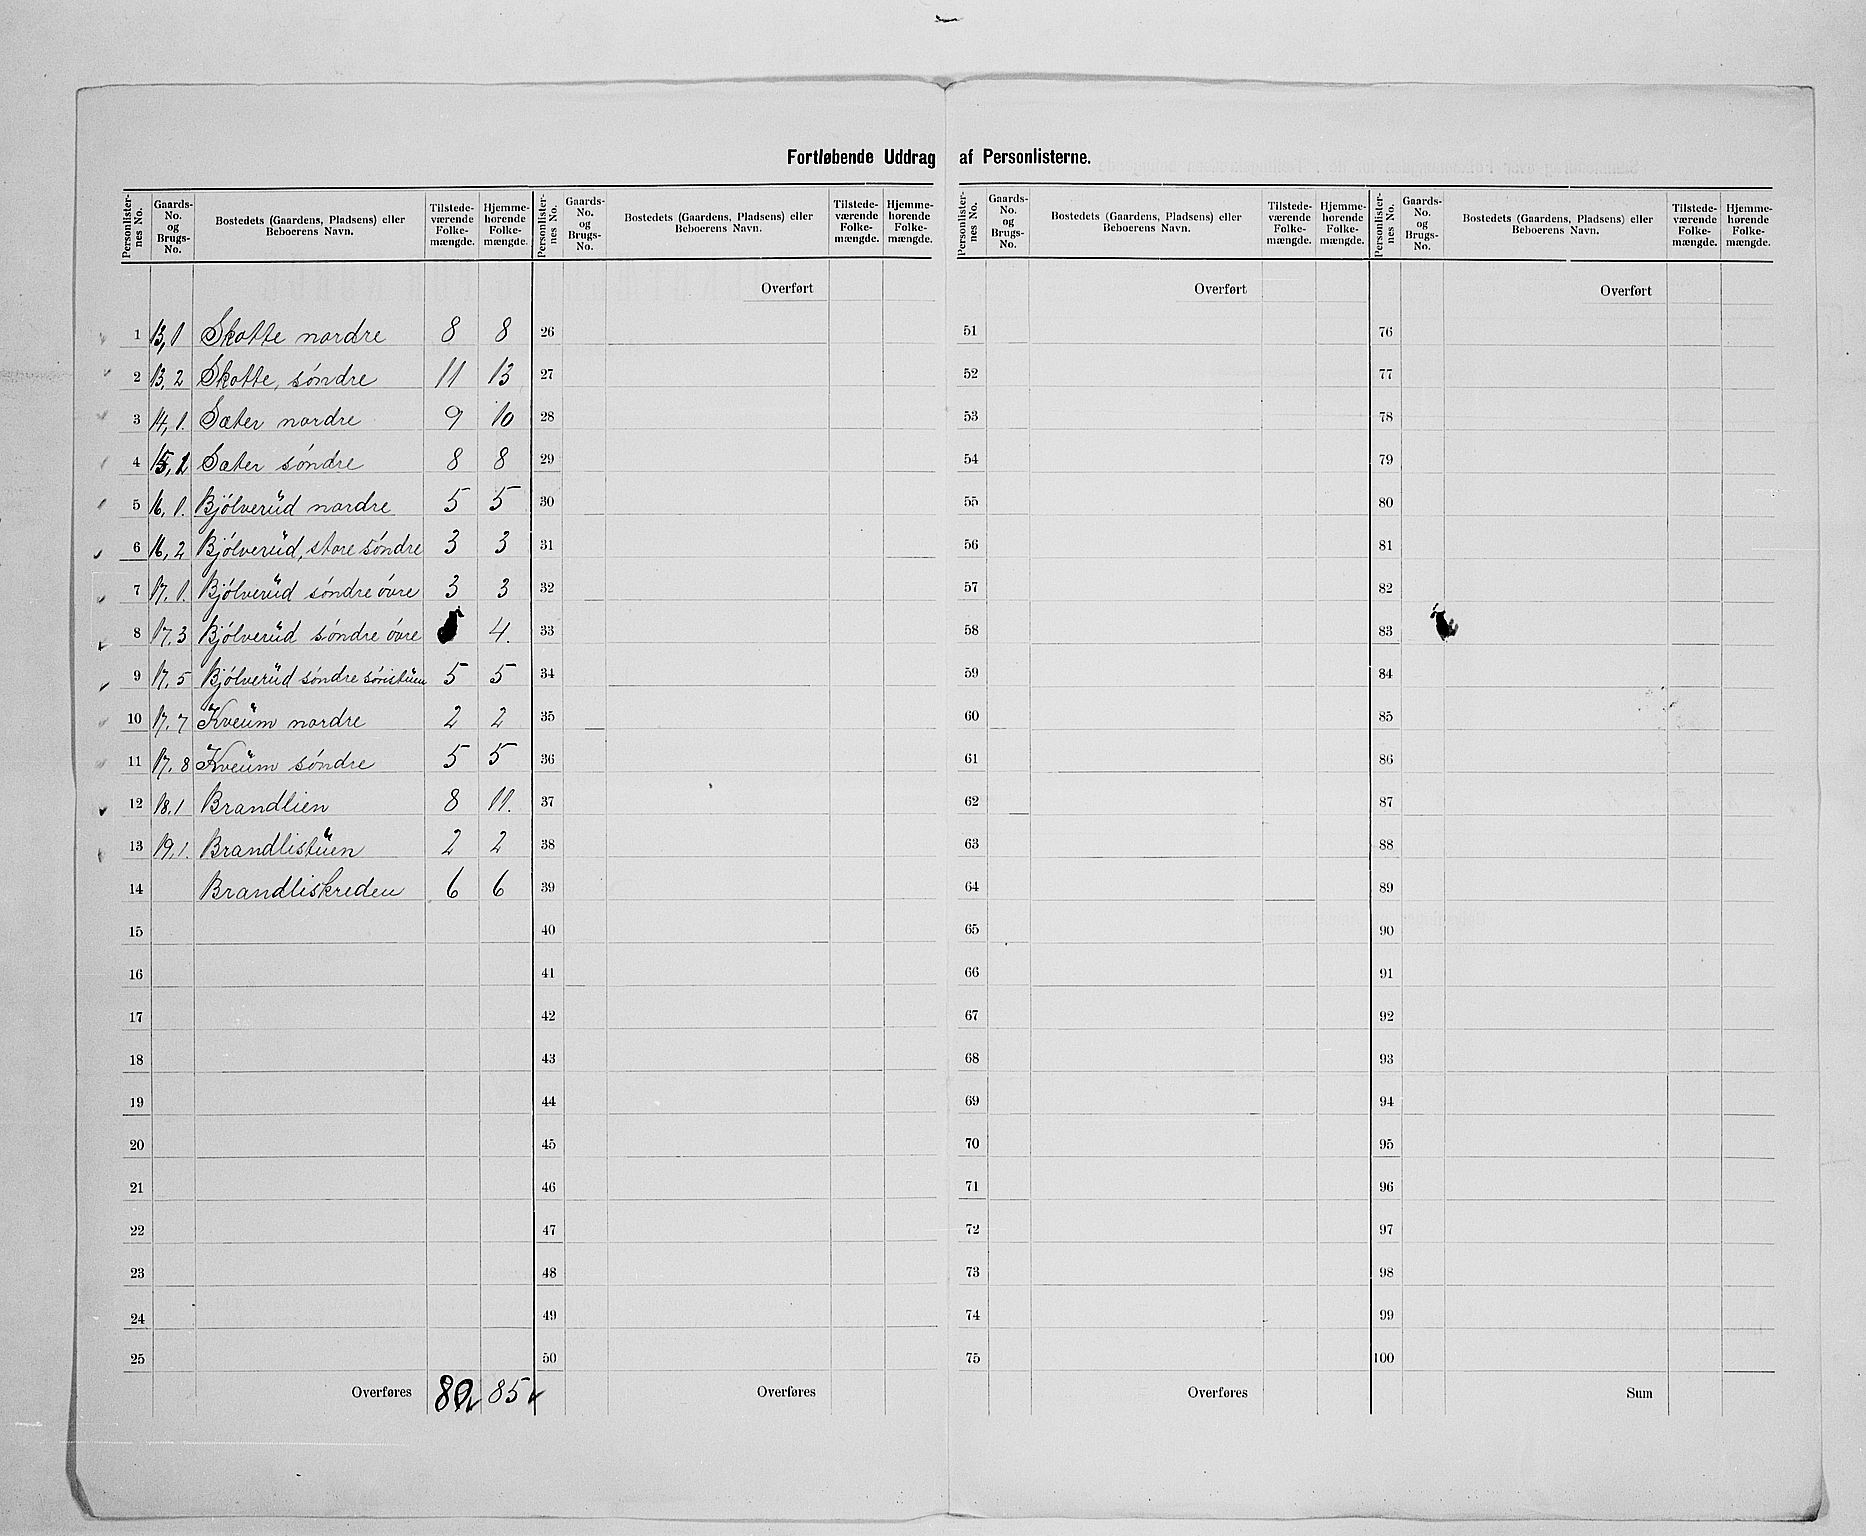 Fortløbende Uddrag af Personlisterne.
Personlister-nes No. | Gaards-No. og Brugs-No. | Bostedets (Gaardens, Pladsens) eller Beboerens Navn. | Tilstede-værende Folke-mængde. | Hjemme-hørende Folke-mængde. | Personlister-nes No. | Gaards-No. og Brugs-No. | Bostedets (Gaardens, Pladsens) eller Beboerens Navn. | Tilstede-værende Folke-mængde. | Hjemme-hørende Folke-mængde. | Personlister-nes No. | Gaards-No. og Brugs-No. | Bostedets (Gaardens, Pladsens) eller Beboerens Navn. | Tilstede-værende Folke-mængde. | Hjemme-hørende Folke-mængde. | Personlister-nes No. | Gaards-No. og Brugs-No. | Bostedets (Gaardens, Pladsens) eller Beboerens Navn. | Tilstede-værende Folke-mængde. | Hjemme-hørende Folke-mængde.
Overført | Overført | Overført
1 | 13,1 | Skotte nordre | 8 | 8 | 26 | 51 | 76
2 | 13,2 | Skotte, söndre | 11 | 13 | 27 | 52 | 77
3 | 14,1. | Sæter nordre | 9 | 10 | 28 | 53 | 78
4 | 15, | Sæter söndre | 8 | 8 | 29 | 54 | 79
5 | 16,1. | Bjölverüd nordre | 5 | 5 | 30 | 55 | 80
6 | 16,2 | Bjölverüd, store söndre | 3 | 3 | 31 | 56 | 81
7 | 17,1. | Bjölverüd söndre övre | 3 | 3 | 32 | 57 | 82
8 | 17,3 | Bjölverüd söndre övre | 4. | 33 | 58 | 83
9 | 17,5 | Bjölverüd söndre söristüen | 5 | 5 | 34 | 59 | 84
10 | 17,7 | Kveüm nordre | 2 | 2 | 35 | 60 | 85
11 | 17,8 | Kveüm söndre | 5 | 5 | 36 | 61 | 86
12 | 18,1 | Brandlien | 8 | 11. | 37 | 62 | 87
13 | 19,1. | Brandlistüen | 2 | 2 | 38 | 63 | 88
14 | Brandliskreden | 6 | 6 | 39 | 64 | 89
15 | 40 | 65 | 90
16 | 41 | 66 | 91
17 | 42 | 67 | 92
18 | 43 | 68 | 93
19 | 44 | 69 | 94
20 | 45 | 70 | 95
21 | 46 | 71 | 96
22 | 47 | 72 | 97
23 | 48 | 73 | 98
24 | 49 | 74 | 99
25 | 50 | 75 | 100
Overføres | 80 | 85 | Overføres | Overføres | Sum